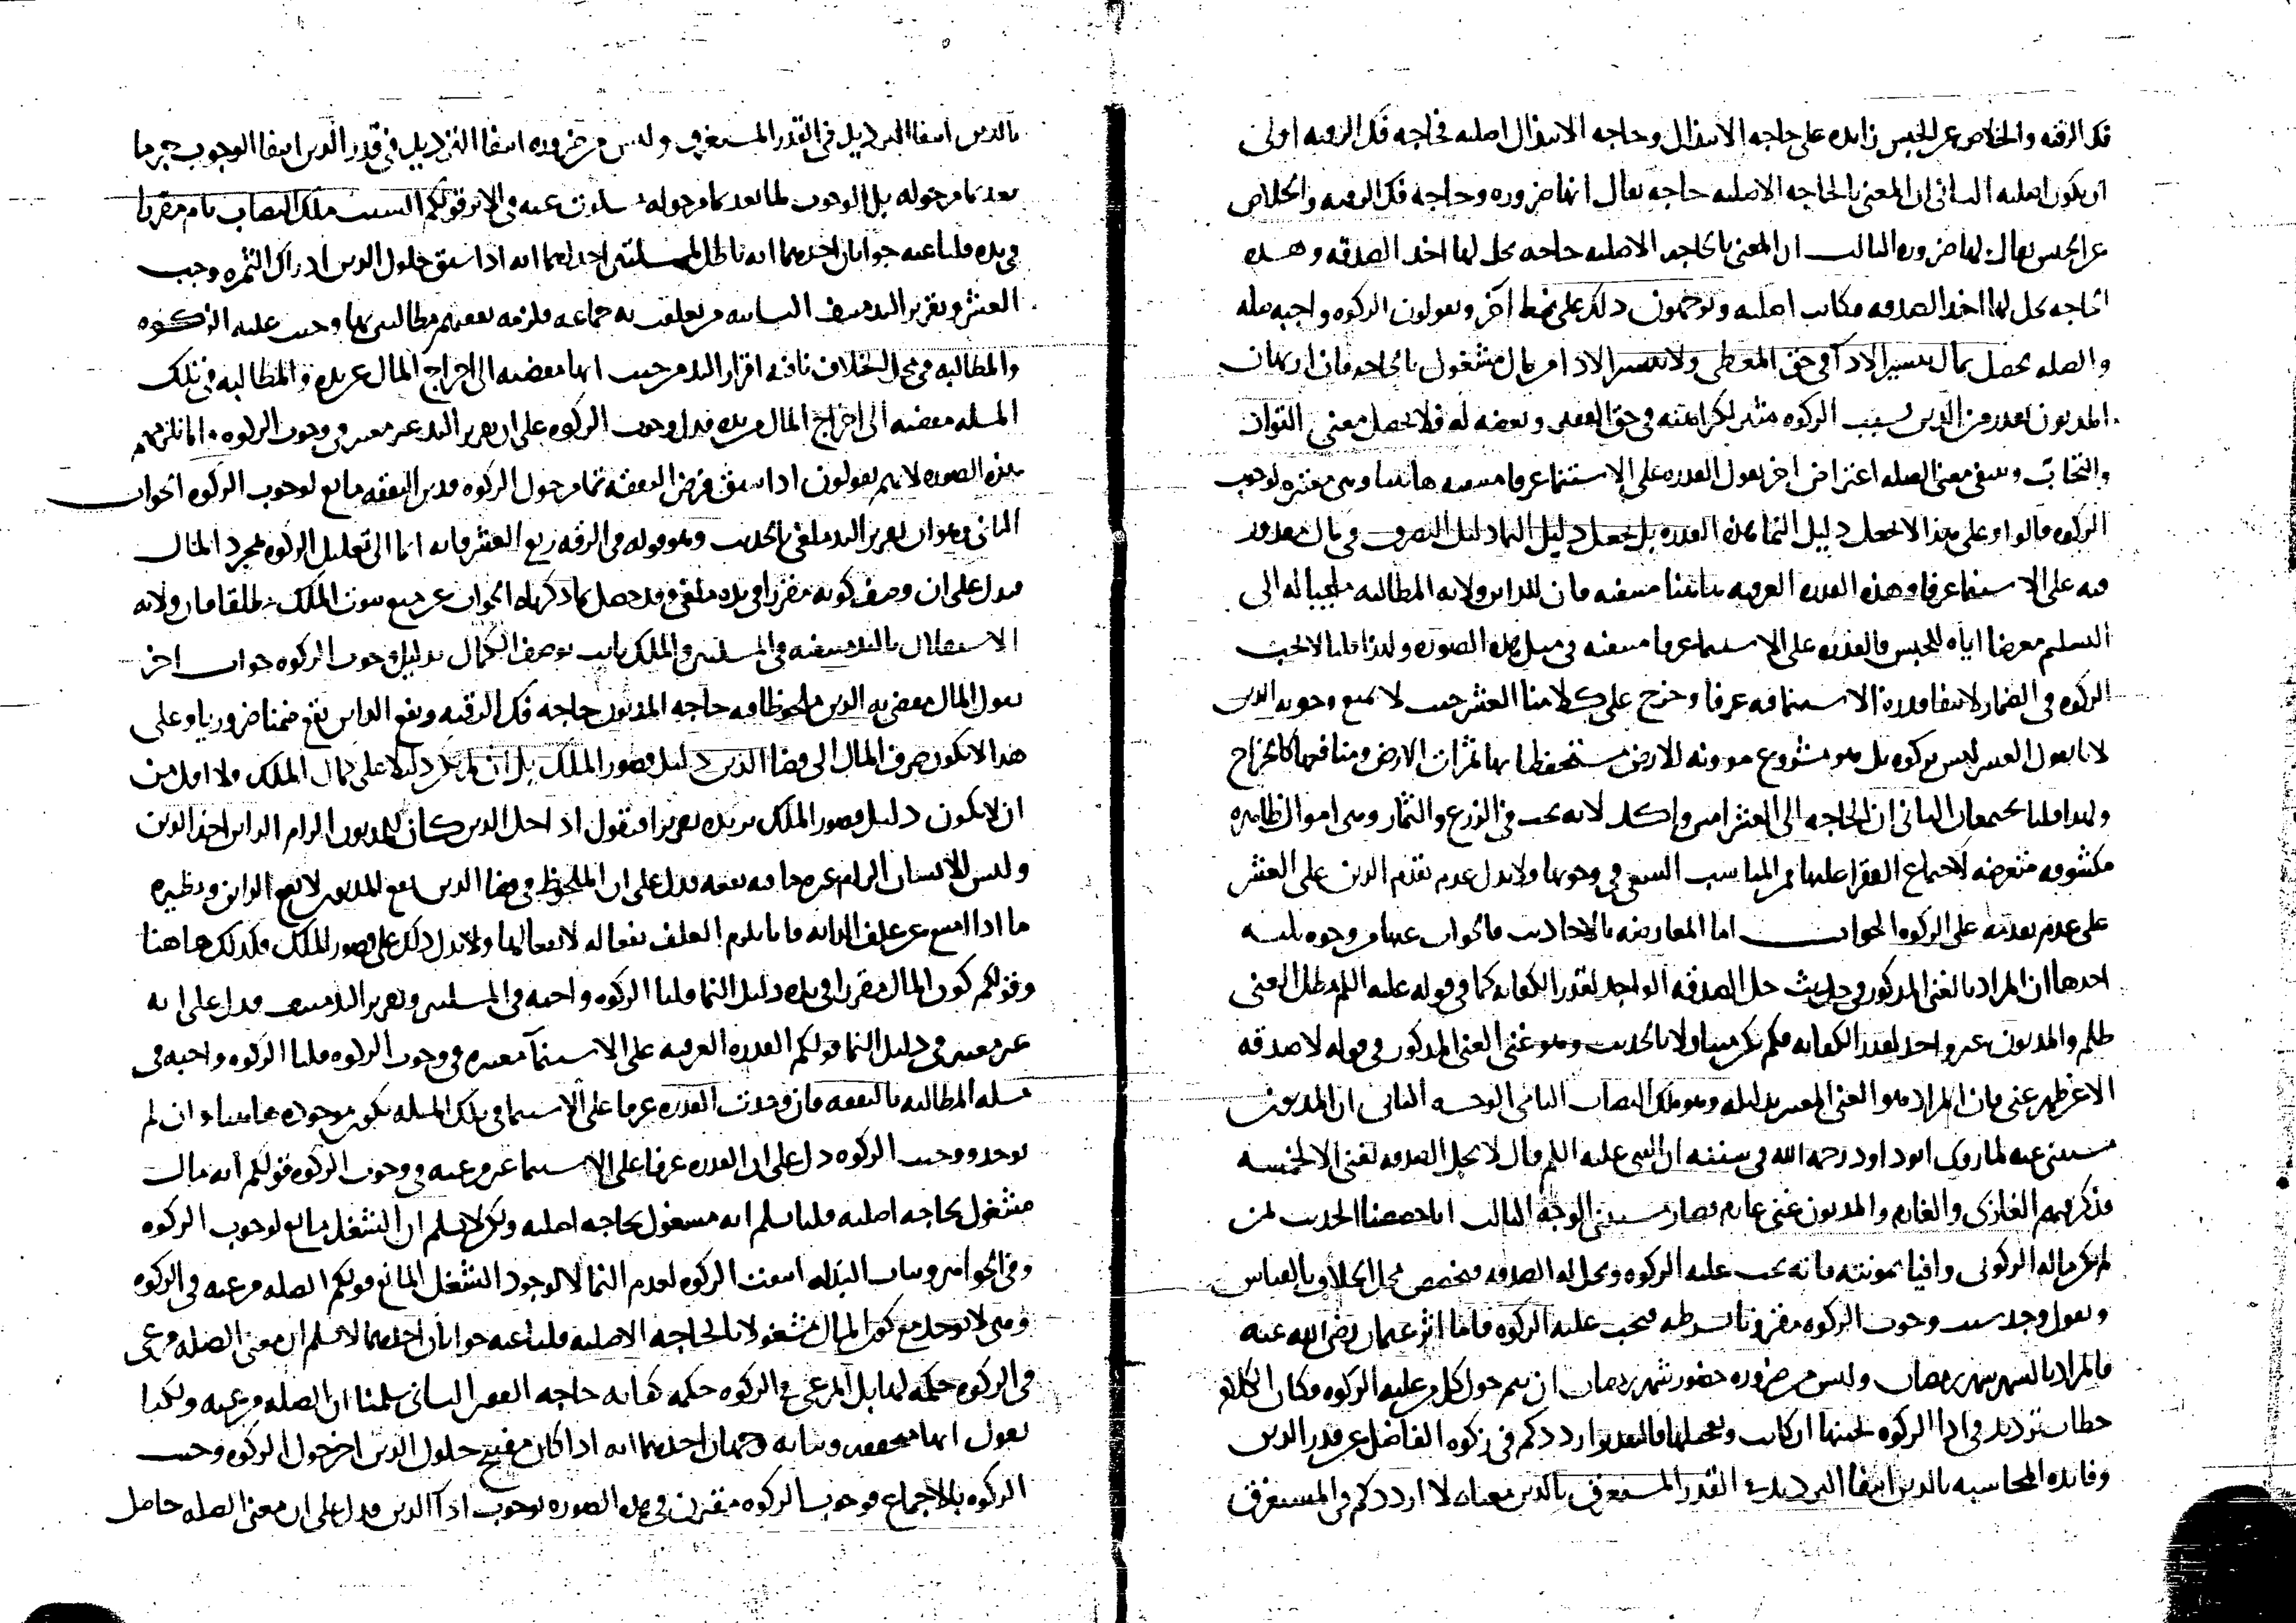 فك الرقبه والخلاص عن الحبس زايده على حاجه الابتذال وحاجه الابتذال اصليه فحاجه فك الرقبه اولى
ان يكون اصليه الثانى ان المعنى بالحاجه الاصليه حاجه يقال انها ضروره وحاجه فك الرقبه والخلاص
عن الحبس يقال لها ضروره الثالث ان المعنى بالحاجه الاصليه حاجه يحل لها اخذ الصدقه وهذه
الحاجه يحل لها اخذ الصدقه فكانت اصليه ويوجهون ذلك على نمط آخر ويقولون الزكوه واجبه صله
والصله يحصل بمال يتيسر الادآ فى حق المعطى ولا يتيسر الادا من مال مشغول بالحاجه فان ارتهان
المديون بقدر من الدين بسبب الزكوه مثير لكراهته فى حق الفقير وبغضه له فلا يحصل معنى التواد
والتحاب وينتفى معنى الصله اعتراض اخر يقول القدره على الاستنما عرفا منتفيه هاهنا وهى معتبره لوجوب
الزكوه قالوا وعلى هذا لا نجعل دليل النما هذه القدره بل نجعل دليل النما دليل التصرف فى مال مقدور
فيه على الاستنما عرفا وهذه القدره العرفيه هاهنا منتفيه فان للداين ولايه المطالبه ملجيا له الى
التسليم معرضا اياه للحبس فالقدره على الاستنما عرفا منتفيه فى مثل هذه الصوره ولهذا قلنا لا تجب
الزكوه فى الضمار لانتفا قدره الاستنما فيه عرفا وخرج على كلامنا العشر حيث لا يمنع وجوبه الدين
لانا نقول العشر ليس بزكوه بل هو مشروع موونه للارض مستحفظا بها ثمرات الارض ومنافعها كالخراج
ولهذا قلنا يجتمعان الثانى ان الحاجه الى العشر امس وآكد لانه يجب فى الزرع والثمار وهى اموال ظاهره
مكشوفه متعرضه لاجتماع الفقرا عليها فمن المناسب السعى فى وجوبها ولا يدل عدم تقدم الدين على العشر
على عدم تقدمه على الزكوه الجواب اما المعارضه بالاحاديث فالجواب عنها من وجوه ثلثه
احدها ان المراد بالغنى المذكور فى حديث حل الصدقه الواجد لقدر الكفايه كما فى قوله عليه السلم مطل الغنى
ظلم والمديون غير واجد لقدر الكفايه فلم يكن متناولا بالحديث وهو غنى الغنى المذكور فى قوله لا صدقه
الا عن ظهر غنى فان المراد هو الغنى المعتبر بدليله وهو ملك النصاب النامى الوجه الثانى ان المديون
مستثنى عنه لما روى ابو داود رحمه الله فى سننه ان النبى عليه السلم قال لا تحل الصدقه لغنى الا لخمسه
فذكر منهم الغازى والغارم والمديون غنى غارم فصار مستثنى الوجه الثالث انا خصصنا الحديث لمن
لم يكن ماله الزكوتى وافيا بمونته فانه يجب عليه الزكوه ويحل له الصدقه فنخصص محل الخلاف بالقياس
ونقول وجد سبب وجوب الزكوه مقرونا بشرطه فتجب عليه الزكوه فاما اثر عثمان رضى الله عنه
فالمراد بالشهر شهر رمضان وليس من ضروره حضور شهر رمضان ان يتم حول كل من عليه الزكوه فكان الكلام
خطاب ترديد فى ادا الزكوه لحينها ان كانت وتعجيلها فالتقدير ارددكم فى زكوه الفاضل عن قدر الدين
وفايده المحاسبه بالدين انتفا الترديد فى القدر المستغرق بالدين معناه لا ارددكم فى المستغرق
بالدين انتفا الترديد فى القدر المستغرق وليس من ضروره انتفا الترديد فى قدر الدين انتفا الوجوب جزما
بعد تمام حوله بل الوجوب لما بعد تمام حوله مسكوت عنه فى الاثر قولكم السبب ملك النصاب تام مقررا
فى يده قلنا عنه جوابان احدهما انه باطل بمسلتين احداهما انه اذا سبق حلول الدين ادراك الثمره وجب
العشر وتقرير اليد منتف الثانيه من تعلقت به جماعه فلزمه نفقتهم مطالبين بها وجبت عليه الزكوه
والمطالبه فى محل الخلاف نافيه اقرار اليد من حيث انها مفضيه الى اخراج المال عن يده والمطالبه فى تلك
المسله مفضيه الى اخراج المال من يده فدل وجوب الزكوه على ان تقرير اليد غير معتبر فى وجوب الزكوه وانما نلزمهم
بهذه الصوره لانهم يقولون اذا سبق فرض النفقه تمام حول الزكوه فدين النفقه مانع لوجوب الزكوه الجواب
الثانى وهو ان تقرير اليد ملغى بالحديث وهو قوله فى الرقه ربع العشر فانه ايما الى تعليل الزكوه بمجرد المال
فدل على ان وصف كونه مقررا فى يده ملغى وقد حصل بما ذكرناه الجواب عن منع ثبوت الملك مطلقا فان ولايه
الاستقلال باليد منتفيه فى المسلتين والملك ثابت بوصف الكمال بدليل وجوب الزكوه جواب اخر
نقول المال مقضى به الدين ملحوظا فيه حاجه المديون حاجه فك الرقبه ونفع الداين يقع ضمنا ضروريا وعلى
هذا لا يكون صرف المال الى قضا الدين دليل قصور الملك بل ان لم يكن دليلا على كمال الملك ولا اقل من
ان لا يكون دليل قصور الملك نزيده تقريرا فنقول اذا حل الدين كان للمديون الزام الداين اخذ الدين
وليس للانسان الزام غيره ما فيه نفعه فدل على ان الملحوظ فى قضا الدين نفع المديون لا نفع الداين ونظيره
ما اذا امتنع عن علف الدابه فانا نلزمه العلف نفعا له لا نفعا لها ولا يدل ذلك على قصور الملك فكذلك هاهنا
وقولكم كون المال مقررا فى يده دليل النما قلنا الزكوه واجبه فى المسلتين وتقرير اليد منتف فدل على انه
غير معتبر فى دليل النما قولكم القدره العرفيه على الاستنمآ معتبره فى وجوب الزكوه قلنا الزكوه واجبه فى
مسله المطالبه بالنفقه فان وجدت القدره عرفا على الاستنما فى تلك المسله تكون موجوده هاهنا وان لم
توجد ووجبت الزكوه دل على ان القدره عرفا على الاستنما غير مرعيه فى وجوب الزكوه قولكم انه مال
مشغول بحاجه اصليه قلنا نسلم انه مشغول بحاجه اصليه ولكن لا نسلم ان الشغل مانع لوجوب الزكوه
وفى الجواميس وثياب البذله انتفت الزكوه لعدم النما لا لوجود الشغل المانع قولكم الصله مرعيه فى الزكوه
وهى لا توجد مع كون المال مشغولا بالحاجه الاصليه قلنا عنه جوابان احدهما لا نسلم ان معنى الصله مرعى
فى الزكوه حكمه لها بل المرعى فى الزكوه حكمه كفايه حاجه الفقير الثانى سلمنا ان الصله مرعيه ولكنا
نقول انها متحققه وبيانه وجهان احدهما انه اذا كان مفتتح حلول الدين اخر حول الزكوه وجبت
الزكوه بالاجماع فوجوب الزكوه مقترن فى هذه الصوره لوجوب ادآ الدين فدل على ان معنى الصله حاصل